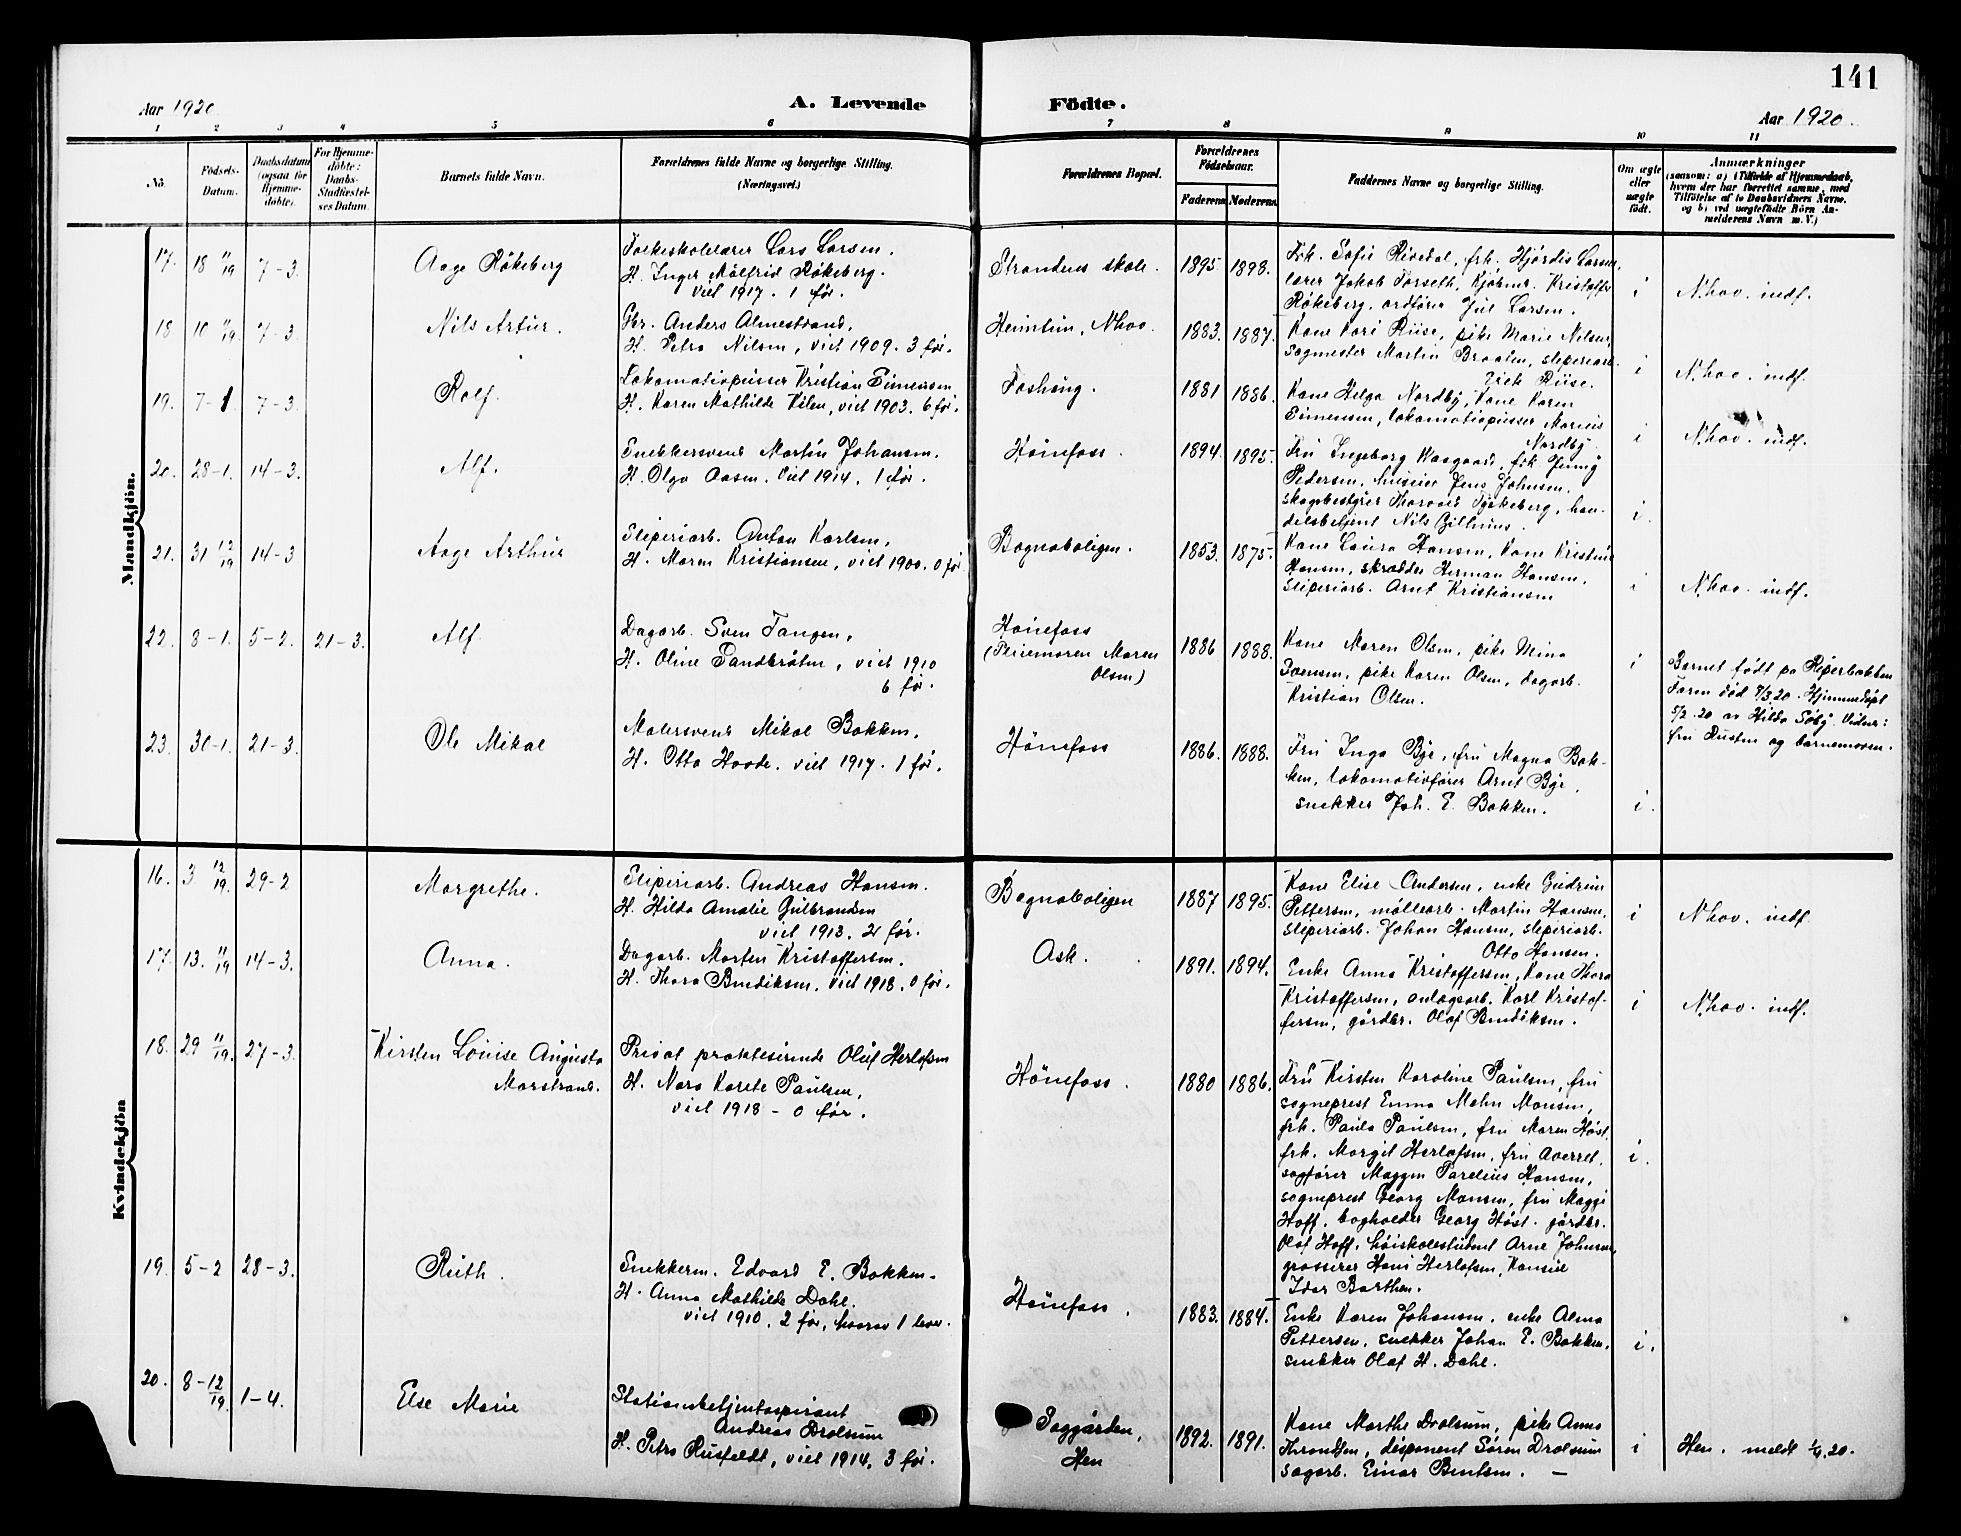 141
Aar 1920
A. Levende
Födte.
Aar 1920.
1 2 3 4 5 6 7 8 9 10 11
No.
Födsels-
Datum.
Daabsdatum
(ogsaa for
Hjemme-
döbte).
For Hjemme-
döbte:
Daabs-
Stadfæstel-
ses Datum.
Barnets fulde Navn.
Forældrenes fulde Navne og borgerlige Stilling.
(Næringsvei.)
Forældrenes Bopæl.
Forældrenes
Födselsaar.
Faderens
Moderens
Faddernes Navne og borgerlige Stilling.
Om ægte
eller
uægte
födt.
Anmærkninger
(saasom: a) i Tilfælde af Hjemmedaab,
hvem der har forrettet samme, med
Tilföielse af to Daabsvidners Navne,
og b) ved uægtefödte Börn An-
melderens Navn m. V.)
Mandkjön.
17. 18 11/19 7-3.
Aage Rökeberg
Folkeskolelærer Lars Larsen.
H. Inger Målfrid Rökeberg.
viet 1917. 1 før.
Strandens skole.
1895. 1898.
Frk. Sofie Rivedal, frk. Hjördis Larsen,
lærer Jakob Forseth, Kjöbm. Kristoffer
Rökeberg, ordförer Jul Larsen.
i
N.hov. indf.
18 10 11/19. 7-3.
Nils Artur.
Gbr. Anders Almestrand,
H. Petra Nilsen, viet 1909. 3 før.
Heimtun, N.hov.
1883. 1887.
Kone Kari Riise, pike Marie Nilsen,
sagmester Martin Braaten, sliperiarb.
Erik Riise.
i
N.hov. indf.
19. 7-1 7-3.
Rolf.
Lokomotivpusser Kristian Simensen
H. Karen Mathilde Vilen, viet 1903. 6 før.
Foshaug.
1881 1886.
Kone Helga Nordby, Kone Karen
Simensen, lokomotivpusser Marius
Nordby.
i
N.hov. indf.
20. 28-1. 14-3.
Alf.
Snekkersvend Martin Johansen.
H. Olga Aasen. Viet 1914. 1 før.
Hönefoss.
1894. 1895.
Fru Ingeborg Haagaard, frk Jenny
Pedersen, Jens Johnsen,
skogbestyrer Thorvald Fyskeberg, han-
delsbetjent Nils Gilhuus.
i.
21. 31 12/19 14-3
Aage Arthur
Sliperiarb. Anton Karlsen,
H. Maren Kristiansen, viet 1900. 0 før
Bægnaboligen.
1853. 1875.
Kone Laura Hansen, Kone Kristine
Hansen, skrædder Herman Hansen,
sliperiarb. Arnt Kristiansen
i
N.hov. indf.
22. 8-1. 5-2. 21-3.
Alf.
Dagarb. Sven Tangen,
H. Oline Sandbråten, viet 1910
6 før.
Hönefoss
(Pleiemoren Maren
Olsen)
1886 1888.
Kone Maren Olsen, pike Mina
Svensen, pike Karen Olsen, dagarb.
Kristian Olsen.
i
Barnet født pa Riperbakken
Faren död 7/3.20. Hjemmedöpt
5/2.20 av Hilda Söby. Vidner:
fru Rusten og barnemoren.
23. 30-1. 21-3.
Ole Mikal
Malersvend Mikal Bakken.
H. Otta Haade. viet 1917. 1 før.
Hönefoss
1886. 1888.
Fru Inga Bye, fru Magna Bak-
ken, lokomotivförer Arnt Bye,
snekker Joh. E. Bakken.
i.
Kvindekjön
16. 3 12/19. 29-2
Margrethe.
Sliperiarb. Andreas Hansen.
H. Hilda Amalie Gulbrandsen
viet 1913. 2 før.
Bægnaboligen
1887 1895.
Kone Elise Andersen, enke Gudrun
Pettersen, möllearb. Martin Hansen,
sliperiarb. Johan Hansen, sliperiarb.
Otto Hansen.
i
N.hov. indf.
17. 13. 11/19 14-3.
Anna.
Dagarb. Morten Kristoffersen.
H. Thora Bendiksen. Viet 1918. 0 før.
Ask.
1891. 1894.
Enke Anna Kristoffersen, Kone Thora
Kristoffersen, anlægsarb. Karl Kristof-
fersen, gårdbr. Olaf Bendiksen.
i
N.hov. indf.
18. 29 11/19. 27-3.
Kirsten Louise Augusta
Marstrand.
Privat praktiserende Oluf Herlofsen
H. Nora Karete Paulsen,
viet 1918 - 0 før.
Hönefoss.
1880 1886.
Fru Kirsten Karoline Paulsen, fru
sogneprest Emma Mohn Monsen,
frk. Paula Paulsen, fru Maren Höst,
frk. Margit Herlofsen, fru Overret.
sagförer Maggen Parelius Hansen,
sogneprest Georg Monsen, fru Maggi
Hoff, bogholder Georg Höst. gårdbr.
Olaf Hoff, höiskolestudent Arne Johnsen,
grosserer Hans Herlofsen, Konsul
Idar Barthen.
i.
19. 5-2 28-3.
Ruth.
Snekkerm. Edvard E. Bakken.
H. Anna Mathilde Dahl.
viet 1910. 2 før, hvorav 1 lever.
Hönefoss.
1883. 1884.
Enke Karen Johansen, enke Alma
Pettersen, snekker Johan E. Bakken,
snekker Olaf H. Dahl.
i.
20. 8-12/19. 1-4.
Else Marie
Stationsbetjentaspirant
Andreas Drolsum
H. Petra Rusfeldt, viet 1914. 3 før.
Saggården,
Hen
1892. 1891.
Kone Marthe Drolsum, pike Anna
Throndsen, disponent Sören Drolsum
sagarb. Einar Bentsen. –
i
Hen. meldt 1/4.20.